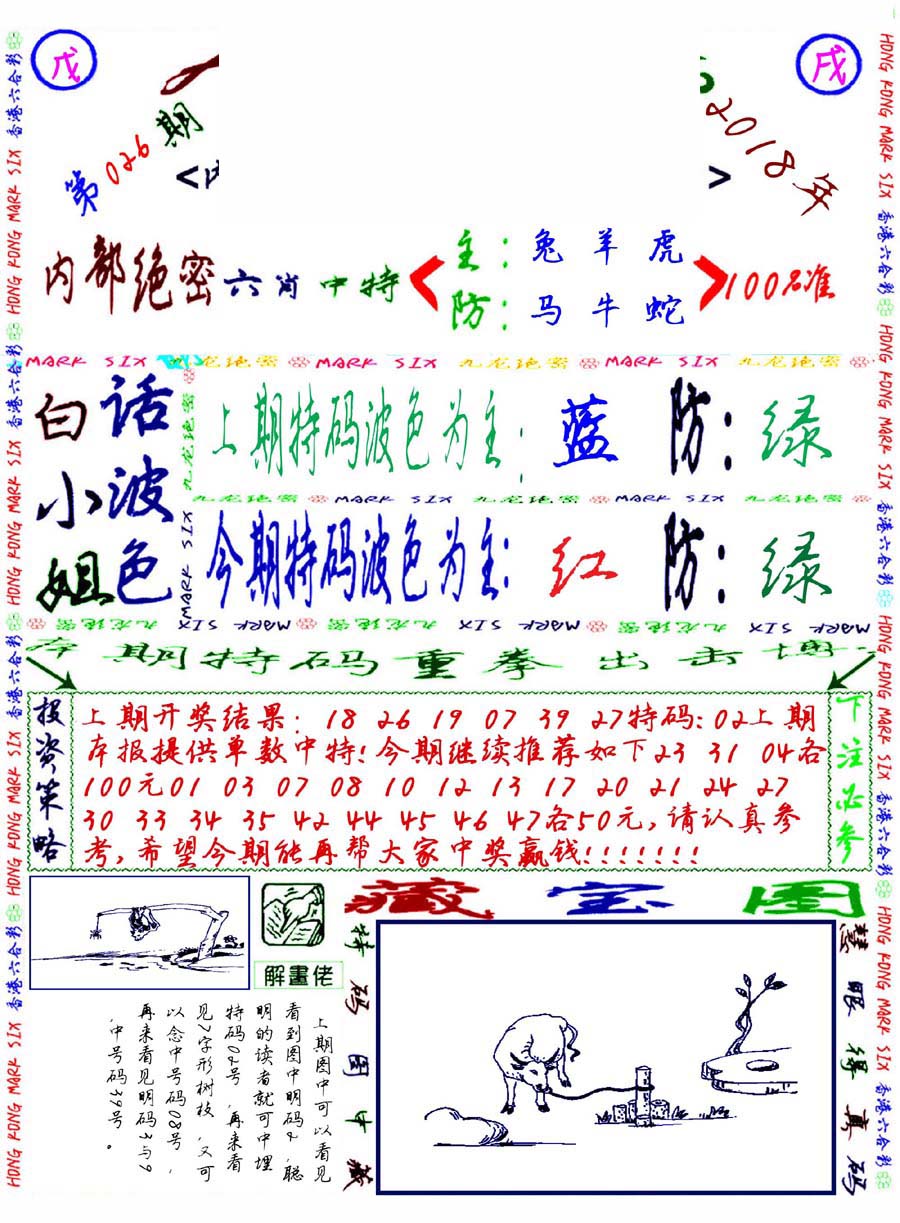 戊
戌
第026期
2018年
内部绝密六肖中特
主：兔羊虎
防：马牛蛇
100%准
MARK SIX 九龙绝密 MARK SIX 九龙绝密 MARK SIX 九龙绝密
白小姐
话波色
上期特码波色为主：蓝 防：绿
九龙绝密 MARK SIX 九龙绝密 MARK SIX 九龙绝密
今期特码波色为主：红 防：绿
九龙绝密 MARK SIX 九龙绝密 MARK SIX 九龙绝密 MARK SIX
期特码重拳出击
投资策略
上期开奖结果：18 26 19 07 39 27特码：02上期
本报提供单数中特！今期继续推荐如下23 31 04各
100元01 03 07 08 10 12 13 17 20 21 24 27
30 33 34 35 42 44 45 46 47各50元，请认真参
考，希望今期能再帮大家中奖赢钱！！！！！！！
下注必参
解畫佬
藏宝图
特码图中藏
慧眼得真码
上期图中可以看见
看到图中明码2，聪
明的读者就可中埋
特码02号，再来看
见7字形树枝，又可
以念中号码08号，
再来看见明码3与9
，中号码39号。
HONG KONG MARK SIX 香港六合彩
HONG KONG MARK SIX 香港六合彩